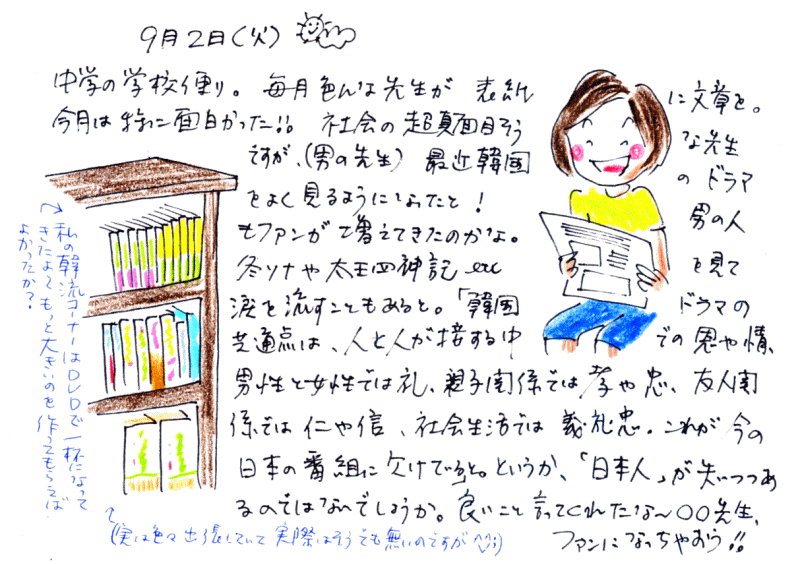 9月2日(火)
中学の学校便り。毎月色んな先生が 表紙に文章を。
今月は特に面白かった!! 社会の超真面目そうな先生
ですが、(男の先生) 最近韓国のドラマ
をよく見るようになったと! 男の人
もファンが増えてきたのかな。
冬ソナや太王四神記 etc を見て
涙を流すこともあると。「韓国ドラマの
共通点は、人と人が接する中での恩や情、
男性と女性では礼、親子関係では孝や忠、友人関
係では仁や信、社会生活では義礼忠。これが今の
日本の番組に欠けてると。というか、「日本人」が失いつつあ
るのではないでしょうか。良いこと言ってくれたな〜〇〇先生、
ファンになっちゃおう!!
私の韓流コーナーはDVDで一杯になって
きたよ〜、もっと大きいのを作ってもらえば
よかったか?
(実は色々出張していて実際はそうでも無いのですが^^;)